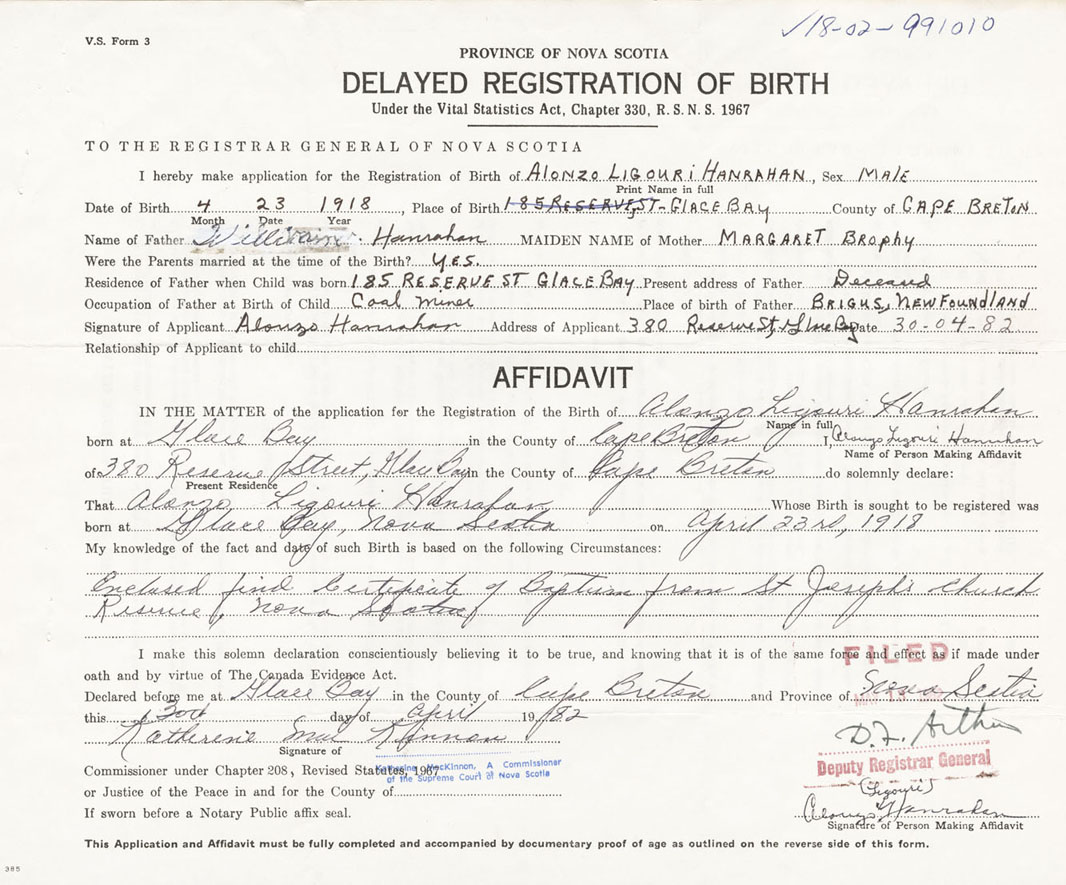 ✓18-02-991010
V.S. Form 3
PROVINCE OF NOVA SCOTIA
DELAYED REGISTRATION OF BIRTH
Under the Vital Statistics Act, Chapter 330, R.S.N.S. 1967
TO THE REGISTRAR GENERAL OF NOVA SCOTIA
I hereby make application for the Registration of Birth of ALONZO LIGOURI HANRAHAN, Sex MALE
Print Name in full
Date of Birth 4 23 1918, Place of Birth 185 RESERVE ST- GLACE BAY County of CAPE BRETON
Month Date Year
Name of Father William Hanrahan MAIDEN NAME of Mother MARGARET BROPHY
Were the Parents married at the time of the Birth? YES.
Residence of Father when Child was born 185 RESERVE ST GLACE BAY Present address of Father Deceasd
Occupation of Father at Birth of Child Coal Miner Place of birth of Father BRIGUS, NEWFOUNDLAND
Signature of Applicant Alonzo Hanrahan Address of Applicant 380 Reserve St, Glace Bay Date 30-04-82
Relationship of Applicant to child
AFFIDAVIT
IN THE MATTER of the application for the Registration of the Birth of Alonzo Ligouri Hanrahan
Name in full
born at Glace Bay in the County of Cape Breton I, Alonzo Ligouri Hanrahan
Name of Person Making Affidavit
of 380 Reserve Street, Glace Bay in the County of Cape Breton do solemnly declare:
Present Residence
That Alonzo Ligouri Hanrahan Whose Birth is sought to be registered was
born at Glace Bay, Nova Scotia on April 23rd, 1918
My knowledge of the fact and date of such Birth is based on the following Circumstances:
Enclosed find Certificate of Baptism from St Joseph's Church
Reserve, Nova Scotia
I make this solemn declaration conscientiously believing it to be true, and knowing that it is of the same force and effect as if made under
oath and by virtue of The Canada Evidence Act.
FILED
Declared before me at Glace Bay in the County of Cape Breton and Province of Nova Scotia
this 30th day of April 1982
Katherine MacKinnon
Signature of
D.F. Arthur
Deputy Registrar General
Katherine MacKinnon, A Commissioner
of the Supreme Court of Nova Scotia
Commissioner under Chapter 208, Revised Statutes, 1967
or Justice of the Peace in and for the County of
If sworn before a Notary Public affix seal.
(Ligouri)
Alonzo Hanrahan
Signature of Person Making Affidavit
This Application and Affidavit must be fully completed and accompanied by documentary proof of age as outlined on the reverse side of this form.
385